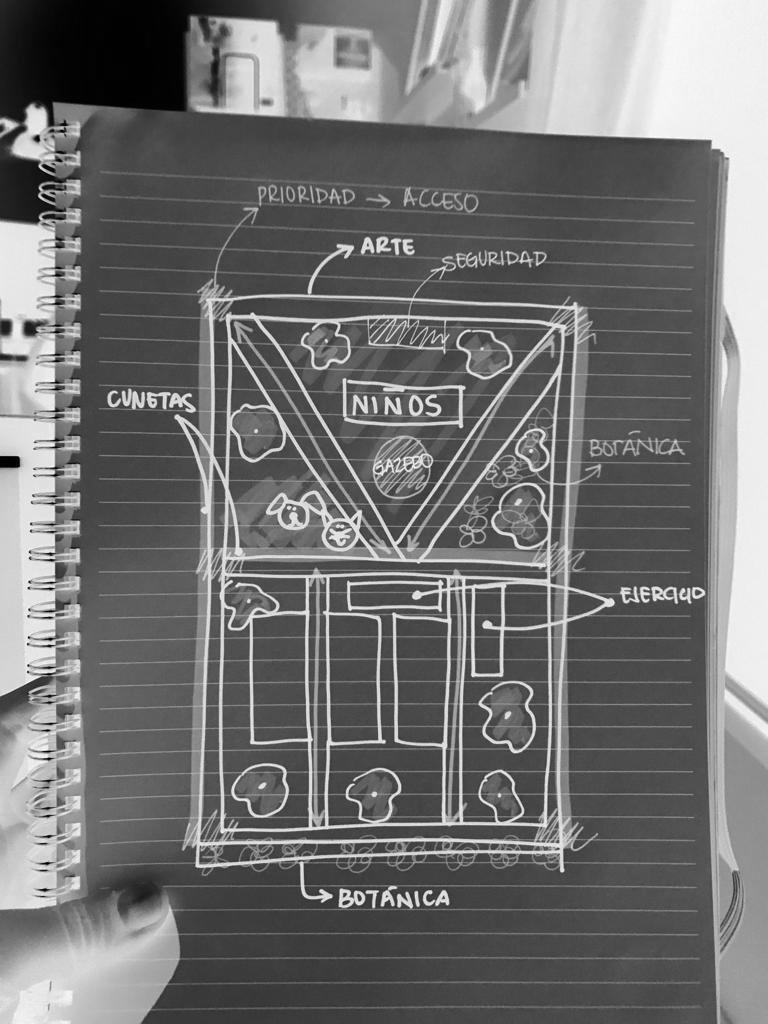 PRIORIDAD → ACCESO
ARTE
SEGURIDAD
CUNETAS
NIÑOS
GAZEBO
BOTÁNICA
EJERCICIO
BOTÁNICA